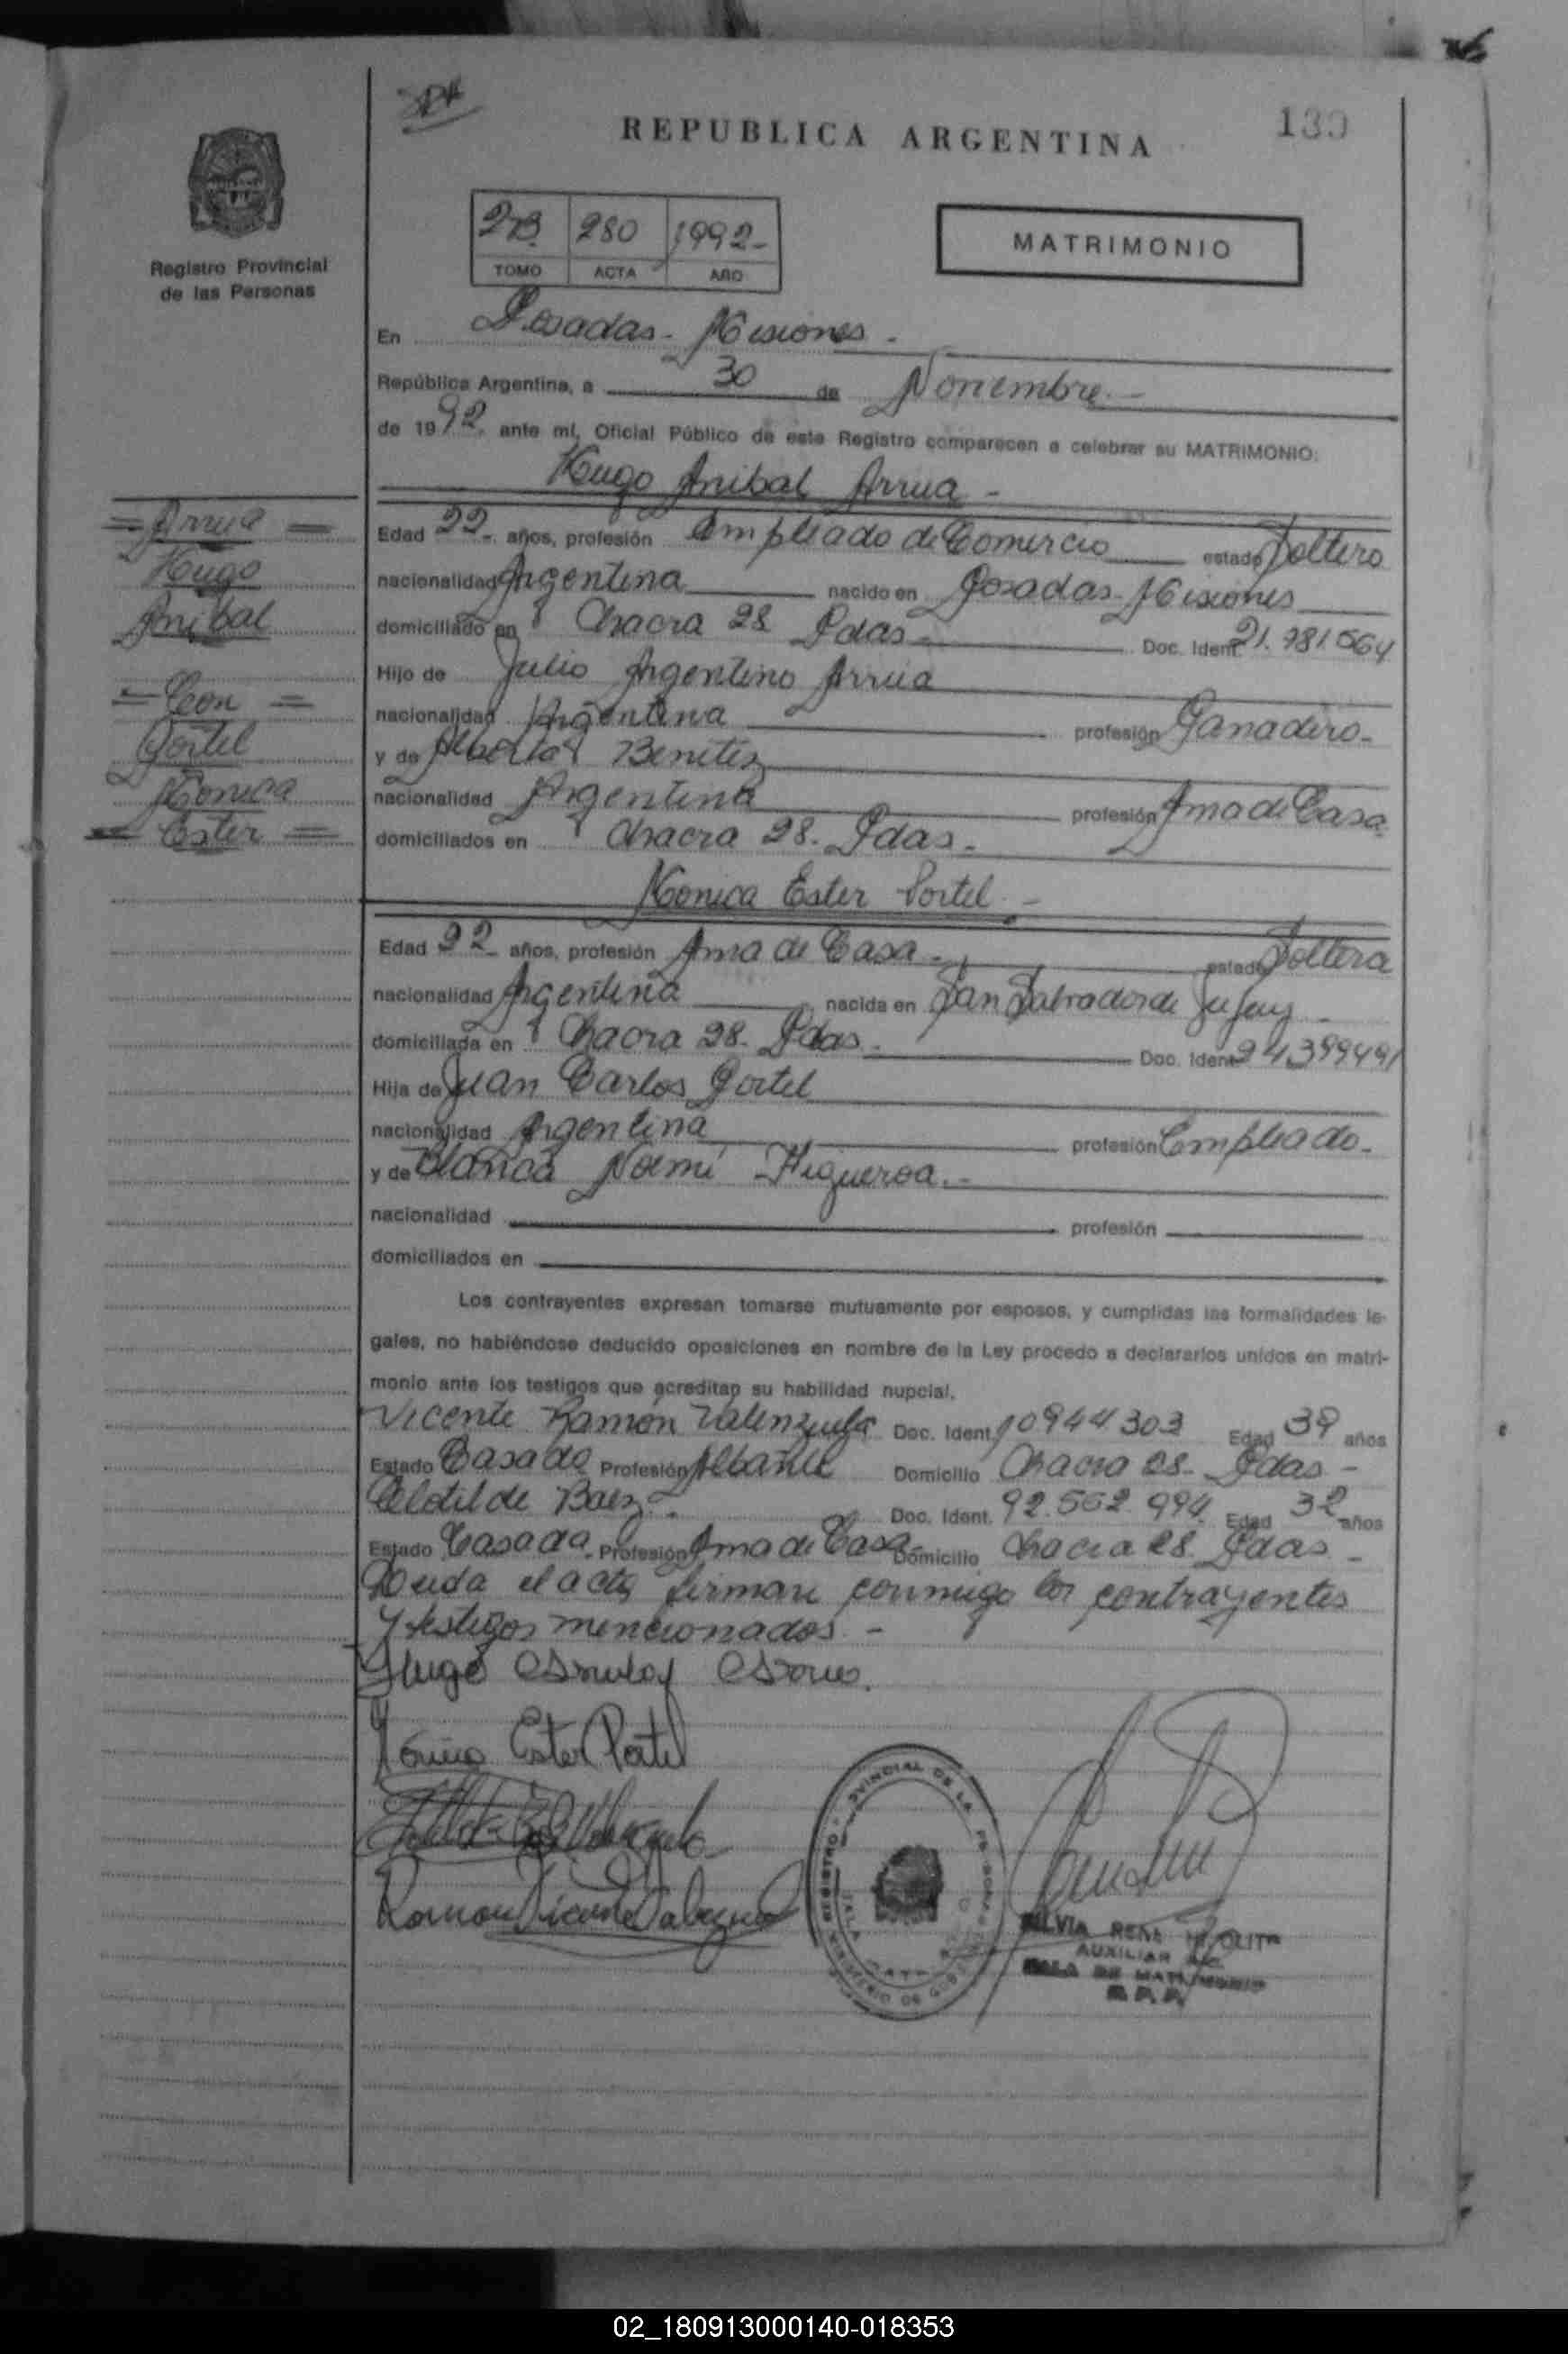 REPUBLICA ARGENTINA
Registro Provincial
de las Personas
2B 280 1992-
TOMO ACTA AÑO
MATRIMONIO
En Posadas - Misiones -
República Argentina, a 30 de Noviembre -
de 1992 ante mí, Oficial Público de este Registro comparecen a celebrar su MATRIMONIO:
Hugo Anibal Arrua -
= Arrua =
Hugo
Anibal
= Con =
Portel
Monica
= Ester =
Edad 22- años, profesión Empleado de Comercio estado Soltero
nacionalidad Argentina nacido en Posadas - Misiones
domiciliado en Chacra 28 Pdas - Doc. Ident. 21.781.564
Hijo de Julio Argentino Arrua
nacionalidad Argentina profesión Ganadero -
y de Alberta Benitez
nacionalidad Argentina profesión Ama de Casa
domiciliados en Chacra 28. Pdas -
Monica Ester Portel. -
Edad 22- años, profesión Ama de Casa - estado Soltera
nacionalidad Argentina nacida en San Salvador de Jujuy
domiciliada en Chacra 28. Pdas. - Doc. Ident. 24399491
Hija de Juan Carlos Portel
nacionalidad Argentina profesión Empleado -
y de Blanca Noemí Figueroa. -
nacionalidad profesión
domiciliados en
Los contrayentes expresan tomarse mutuamente por esposos, y cumplidas las formalidades le-
gales, no habiéndose deducido oposiciones en nombre de la Ley procedo a declararlos unidos en matri-
monio ante los testigos que acreditan su habilidad nupcial.
Vicente Ramón Valenzuela Doc. Ident. 10944303 Edad 39 años
Estado Casado Profesión Albañil Domicilio Chacra 28- Pdas -
Clotilde Baez - Doc. Ident. 92.562.994 Edad 32 años
Estado Casada Profesión Ama de Casa Domicilio Chacra 28. Pdas -
Leida el acta firman conmigo los contrayentes
y testigos mencionados. -
Hugo Anibal Arrua.
Mónica Ester Portel
Ramon Vicente Valenzuela
SILVIA
AUXILIAR
SALA DE MATRIMONIO
R. P. P.
02_180913000140-018353